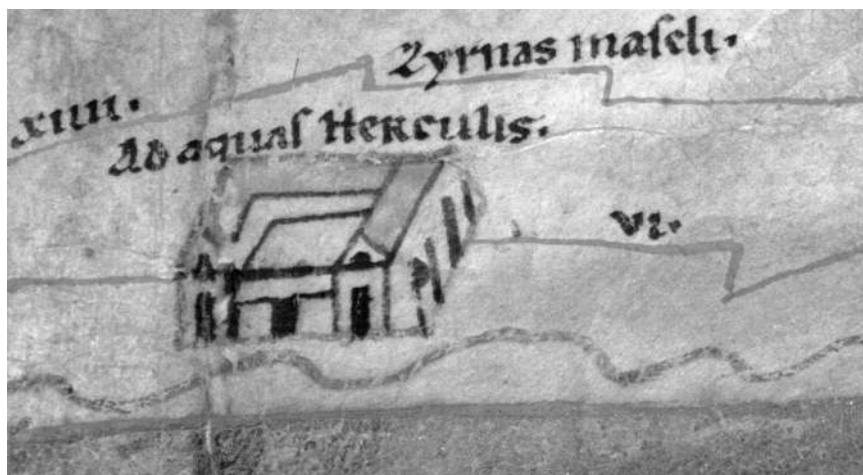 Zyrnas maſeli.
xıııı.
Ad aquaſ Herculis.
vı.